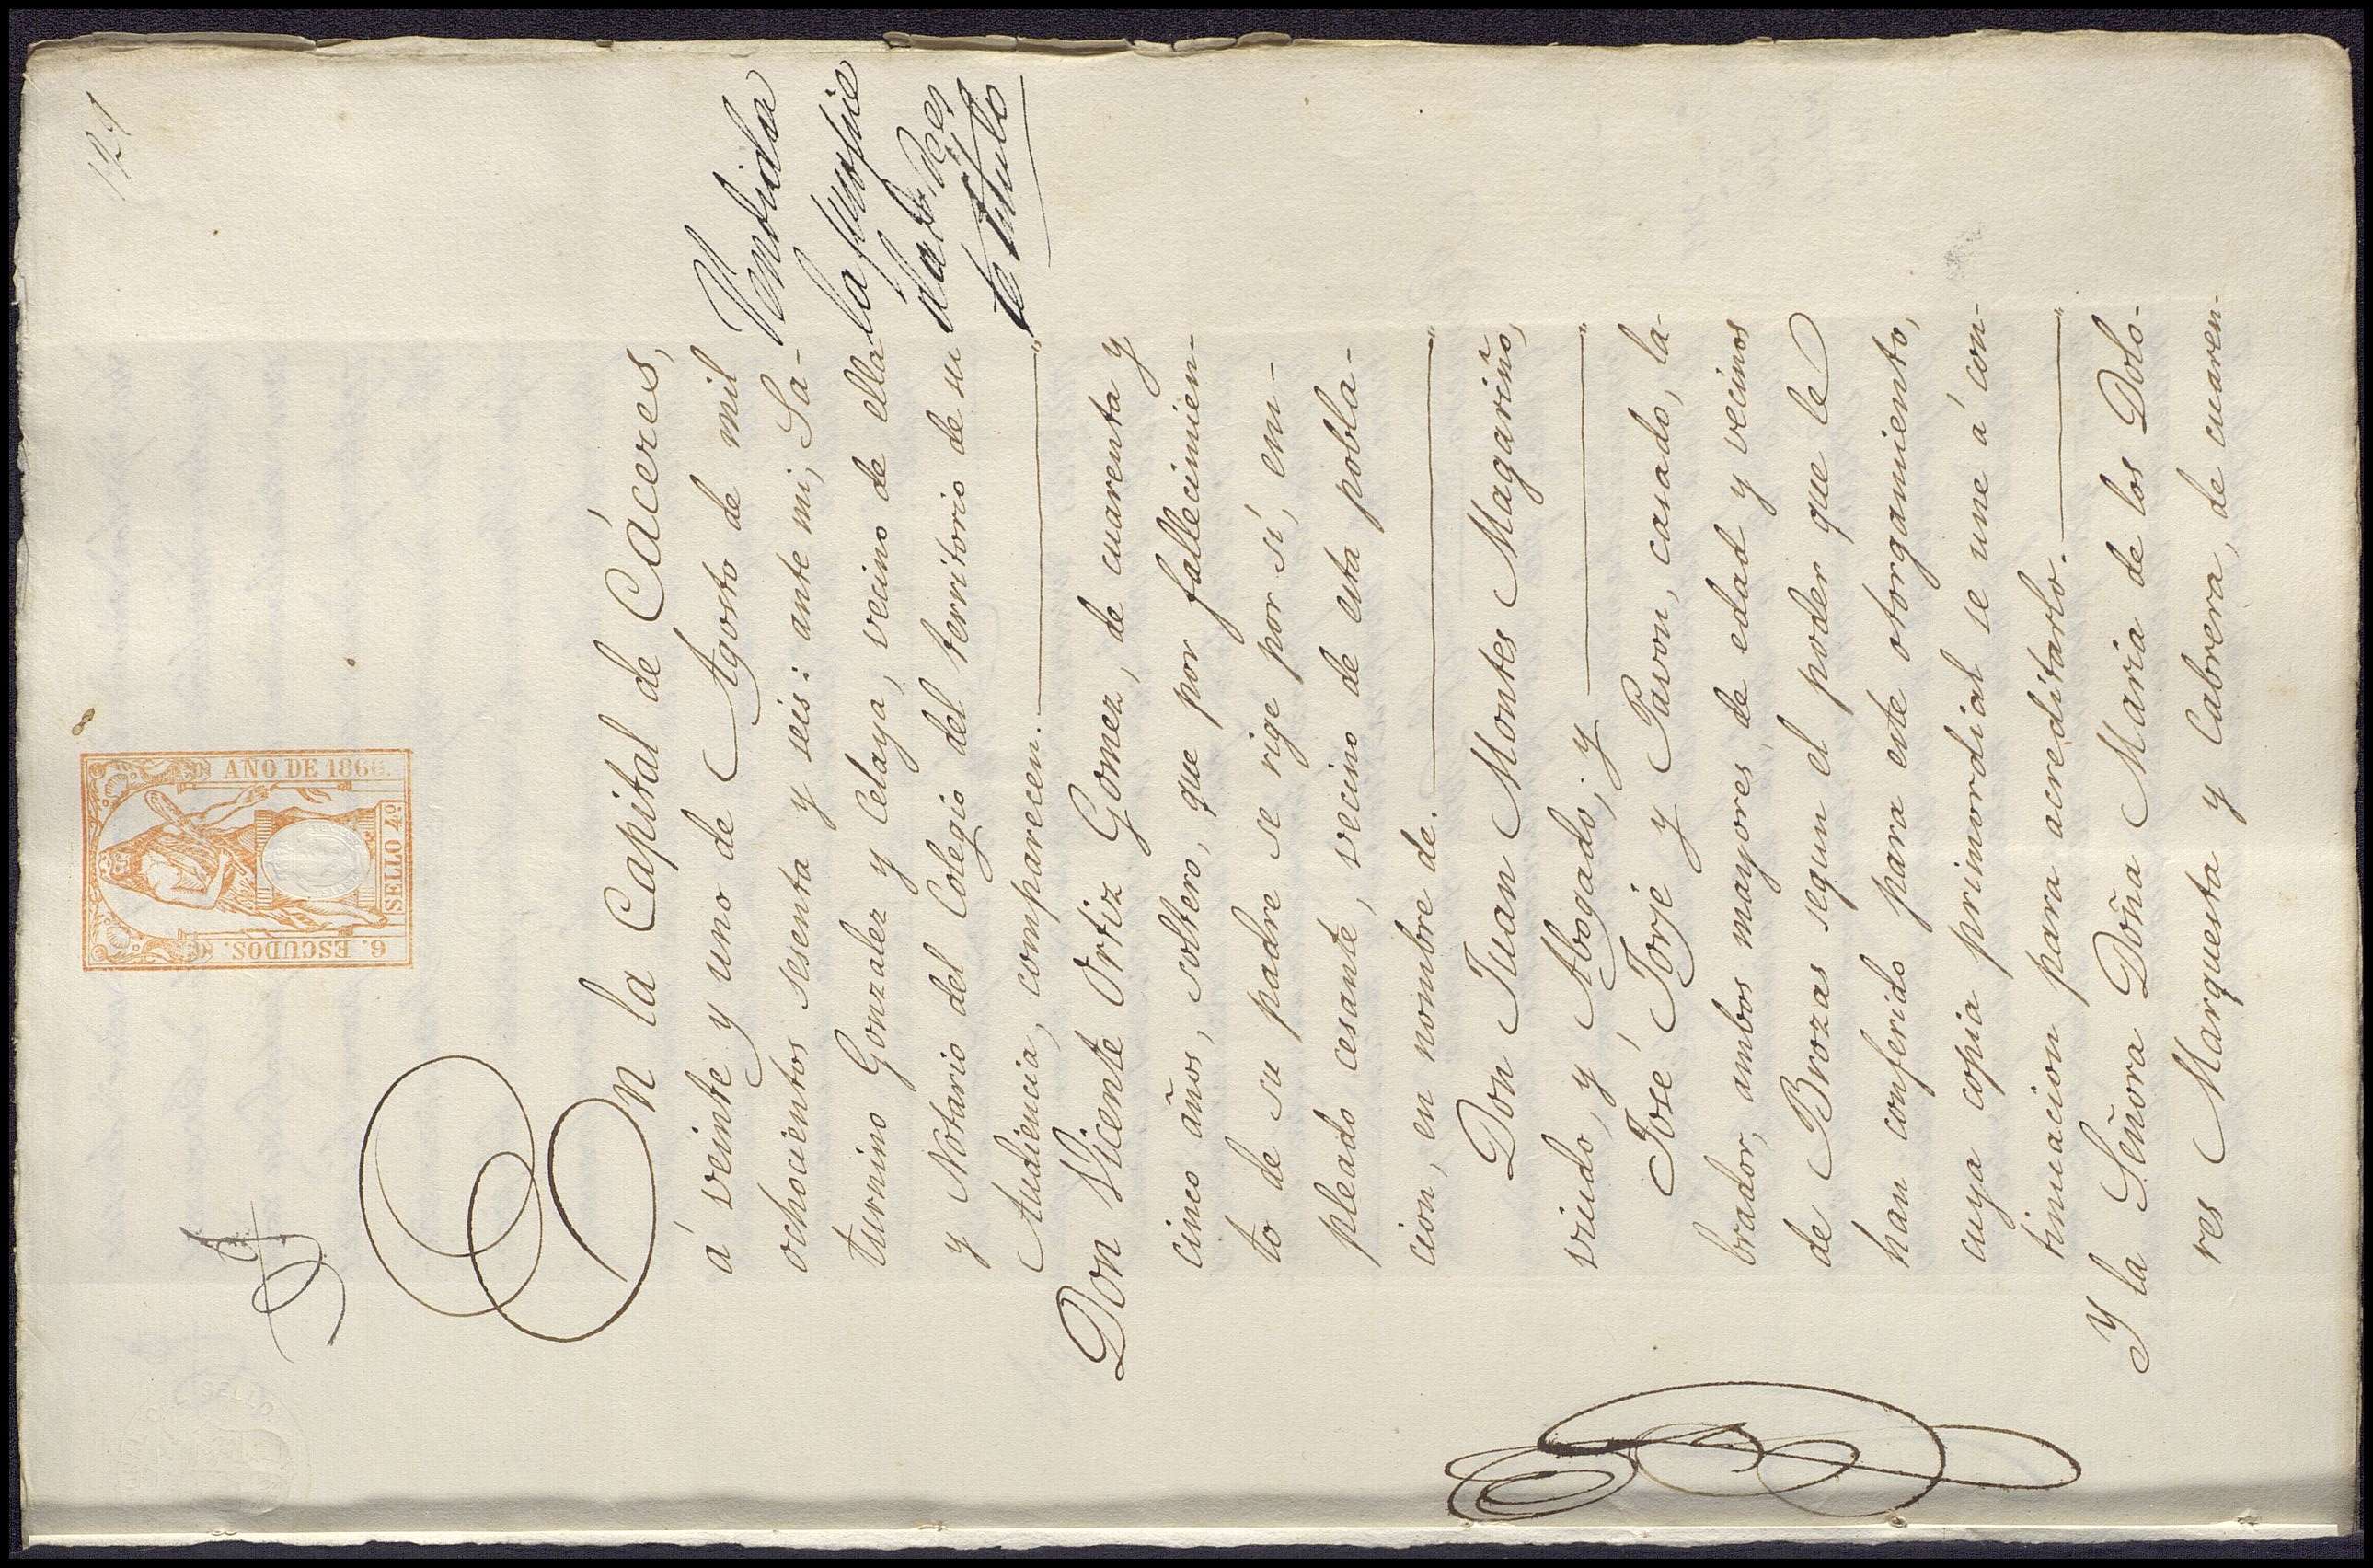 121
AÑO DE 1866.
6. ESCUDOS.
SELLO 4º
En la Capital de Cáceres,
á veinte y uno de Agosto de mil
ochocientos sesenta y seis: ante mi, Sa-
turnino Gonzalez y Celaya, vecino de ella
y Notario del Colegio del territorio de su
Audiencia, comparecen.
Vendida
la
dad
te titulo
Don Vicente Ortiz Gomez, de cuarenta y
cinco años, soltero, que por fallecimien-
to de su padre se rige por sí, em-
pleado cesante, vecino de esta pobla-
cion, en nombre de.
Don Juan Montes Magariño,
viudo, y Abogado; y
José Jorje y Pavon, casado, la-
brador, ambos mayores de edad y vecinos
de Brozas segun el poder que le
han conferido para este otorgamiento,
cuya copia primordial se une á con-
tinuacion para acreditarlo.
Y la Señora Doña Maria de los Dolo-
res Marquesta y Cabrera, de cuaren-